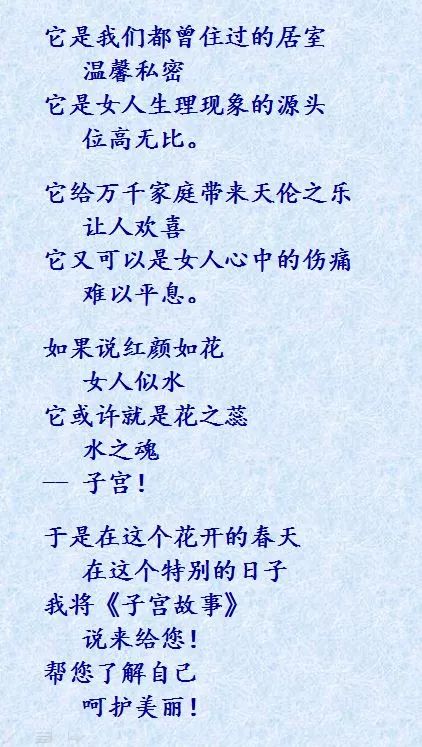 它是我们都曾住过的居室
温馨私密
它是女人生理现象的源头
位高无比。
它给万千家庭带来天伦之乐
让人欢喜
它又可以是女人心中的伤痛
难以平息。
如果说红颜如花
女人似水
它或许就是花之蕊
水之魂
— 子宫!
于是在这个花开的春天
在这个特别的日子
我将《子宫故事》
说来给您!
帮您了解自己
呵护美丽!